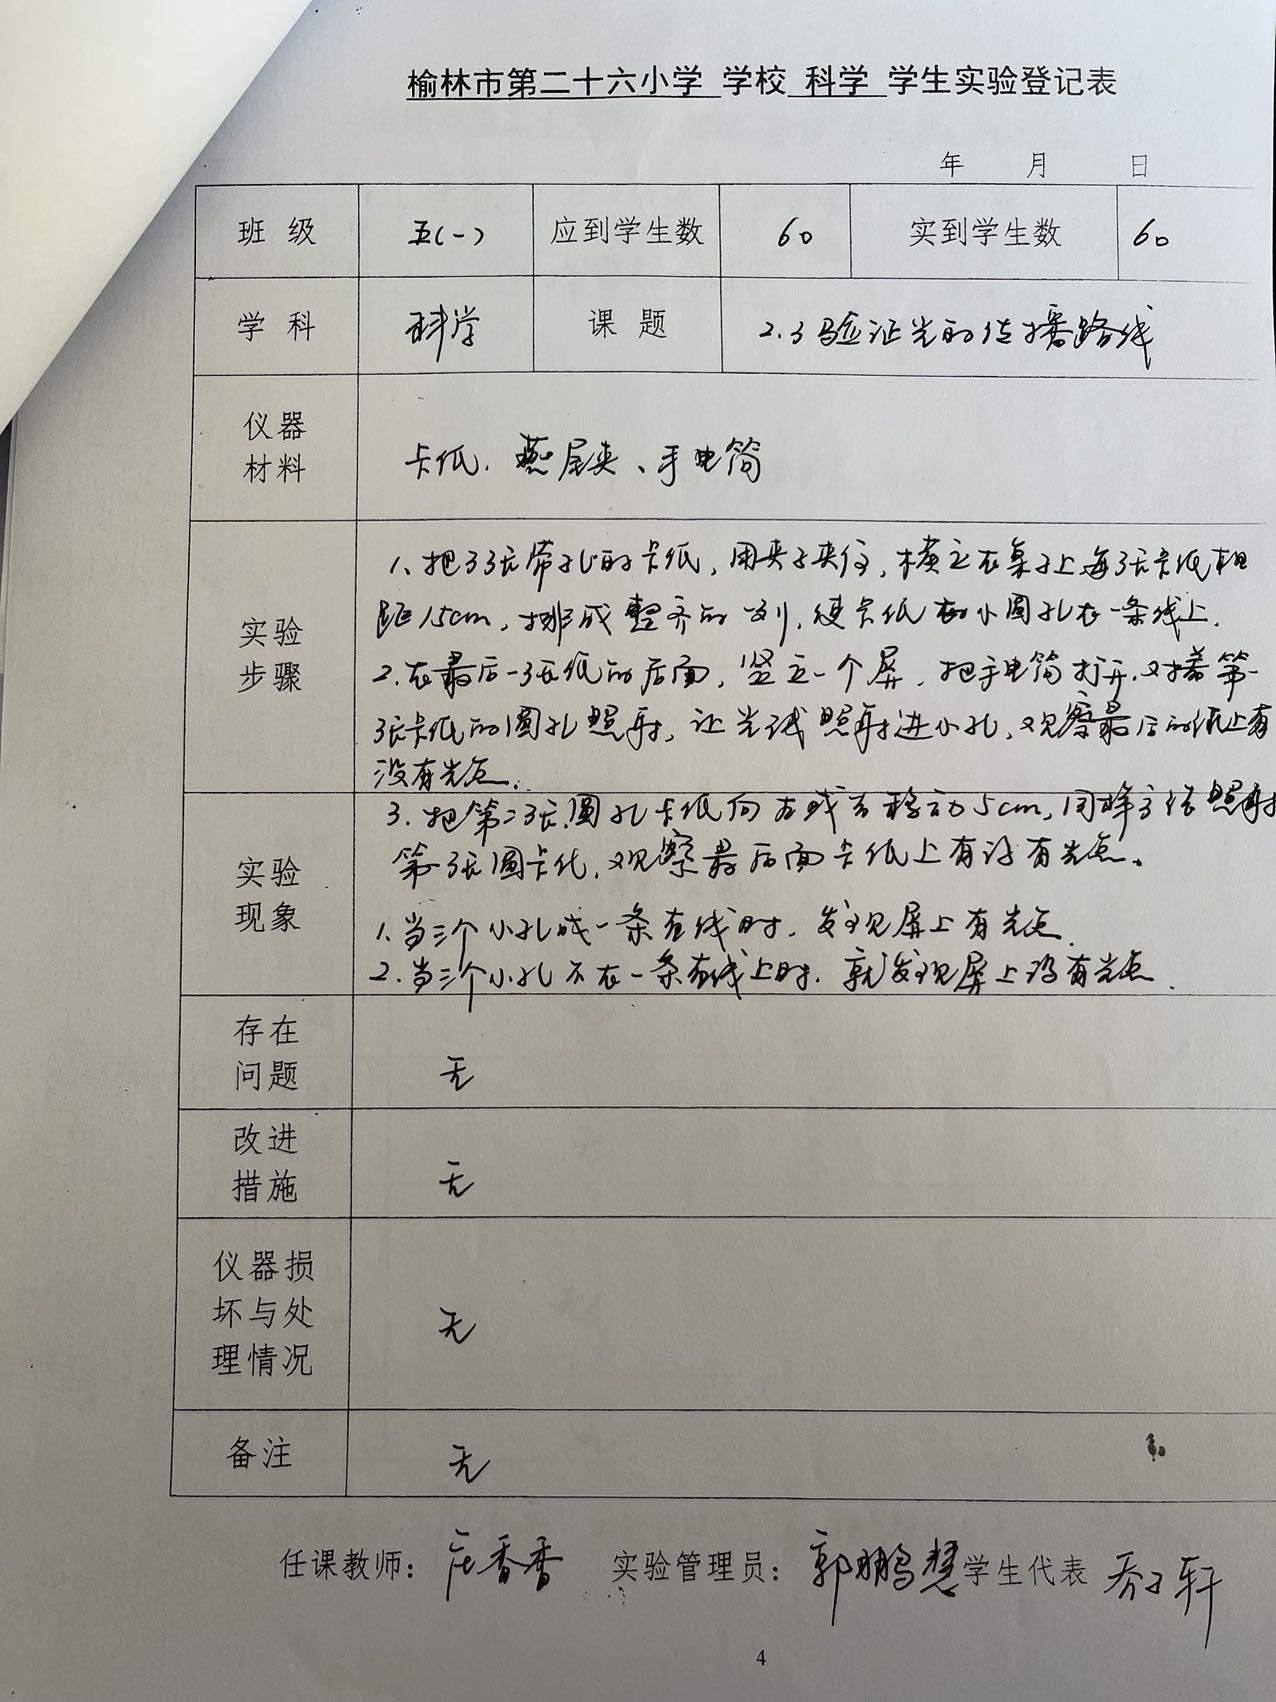 榆林市第二十六小学 学校 科学 学生实验登记表
年 月 日
班 级 五(一) 应到学生数 60 实到学生数 60
学 科 科学 课 题 2.3验证光的传播路线
仪器
材料
卡纸、燕尾夹、手电筒
实验
步骤
1、把3张带孔的卡纸,用夹子夹住,横立在桌子上每张卡纸相
距15cm,排成整齐的一列,使卡纸的小圆孔在一条线上.
2.在最后一张纸的后面,竖立一个屏,把手电筒打开,对着第一
张卡纸的圆孔照射,让光线照射进小孔,观察最后的纸上有
没有光点.
实验
现象
3.把第二张圆孔卡纸向左或右移动5cm,同样方法照射
第一张圆卡纸,观察最后面卡纸上有没有光点。
1.当三个小孔成一条直线时,发现屏上有光点.
2.当三个小孔不在一条直线上时,就发现屏上没有光点.
存在
问题
无
改进
措施
无
仪器损
坏与处
理情况
无
备注 无
任课教师: 庄香香 实验管理员: 郭鹏慧 学生代表 乔子轩
4